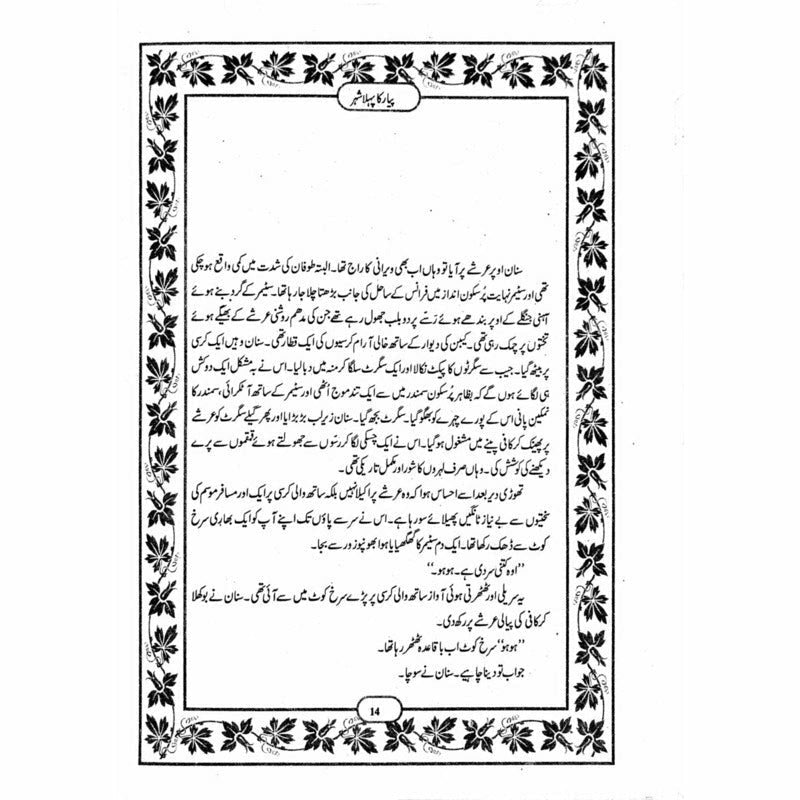 پیار کا پہلا شہر
سنان اوپر عرشے پر آیا تو وہاں اب بھی ویرانی کا راج تھا۔ البتہ طوفان کی شدت میں کمی واقع ہو چکی
تھی اور سٹیمر نہایت پُرسکون انداز میں فرانس کے ساحل کی جانب بڑھتا چلا جا رہا تھا۔ سٹیمر کے گرد بنے ہوئے
آہنی جنگلے کے اوپر بندھے ہوئے رَسّے پر دو بلب جھول رہے تھے جن کی مدھم روشنی عرشے کے بھیگے ہوئے
تختوں پر چمک رہی تھی۔ کیبن کی دیوار کے ساتھ خالی آرام کرسیوں کی ایک قطار تھی۔ سنان وہیں ایک کرسی
پر بیٹھ گیا۔ جیب سے سگرٹوں کا پیکٹ نکالا اور ایک سگرٹ سلگا کر منہ میں دبا لیا۔ اس نے بہ مشکل ایک دو کش
ہی لگائے ہوں گے کہ بظاہر پُرسکون سمندر میں سے ایک تند موج اُٹھی اور سٹیمر کے ساتھ آ ٹکرائی، سمندر کا
نمکین پانی اس کے پورے چہرے کو بھگو گیا۔ سگرٹ بجھ گیا۔ سنان زیرِلب بڑبڑایا اور پھر گیلے سگرٹ کو عرشے
پر پھینک کر کافی پینے میں مشغول ہو گیا۔ اس نے ایک چسکی لگا کر رسّوں سے جھولتے ہوئے قمقموں سے پرے
دیکھنے کی کوشش کی۔ وہاں صرف لہروں کا شور اور مکمل تاریکی تھی۔
تھوڑی دیر بعد اسے احساس ہوا کہ وہ عرشے پر اکیلا نہیں بلکہ ساتھ والی کرسی پر ایک اور مسافر موسم کی
سختیوں سے بے نیاز ٹانگیں پھیلائے سو رہا ہے۔ اس نے سر سے پاؤں تک اپنے آپ کو ایک بھاری سرخ
کوٹ سے ڈھک رکھا تھا۔ ایک دم سٹیمر کا گھگھیایا ہوا بھونپو زور سے بجا۔
”اوہ کتنی سردی ہے۔ ہو ہو۔“
یہ سریلی اور ٹھٹھرتی ہوئی آواز ساتھ والی کرسی پر پڑے سرخ کوٹ میں سے آئی تھی۔ سنان نے بوکھلا
کر کافی کی پیالی عرشے پر رکھ دی۔
”ہو ہو“ سرخ کوٹ اب باقاعدہ ٹھٹھر رہا تھا۔
جواب تو دینا چاہیے۔ سنان نے سوچا۔
14